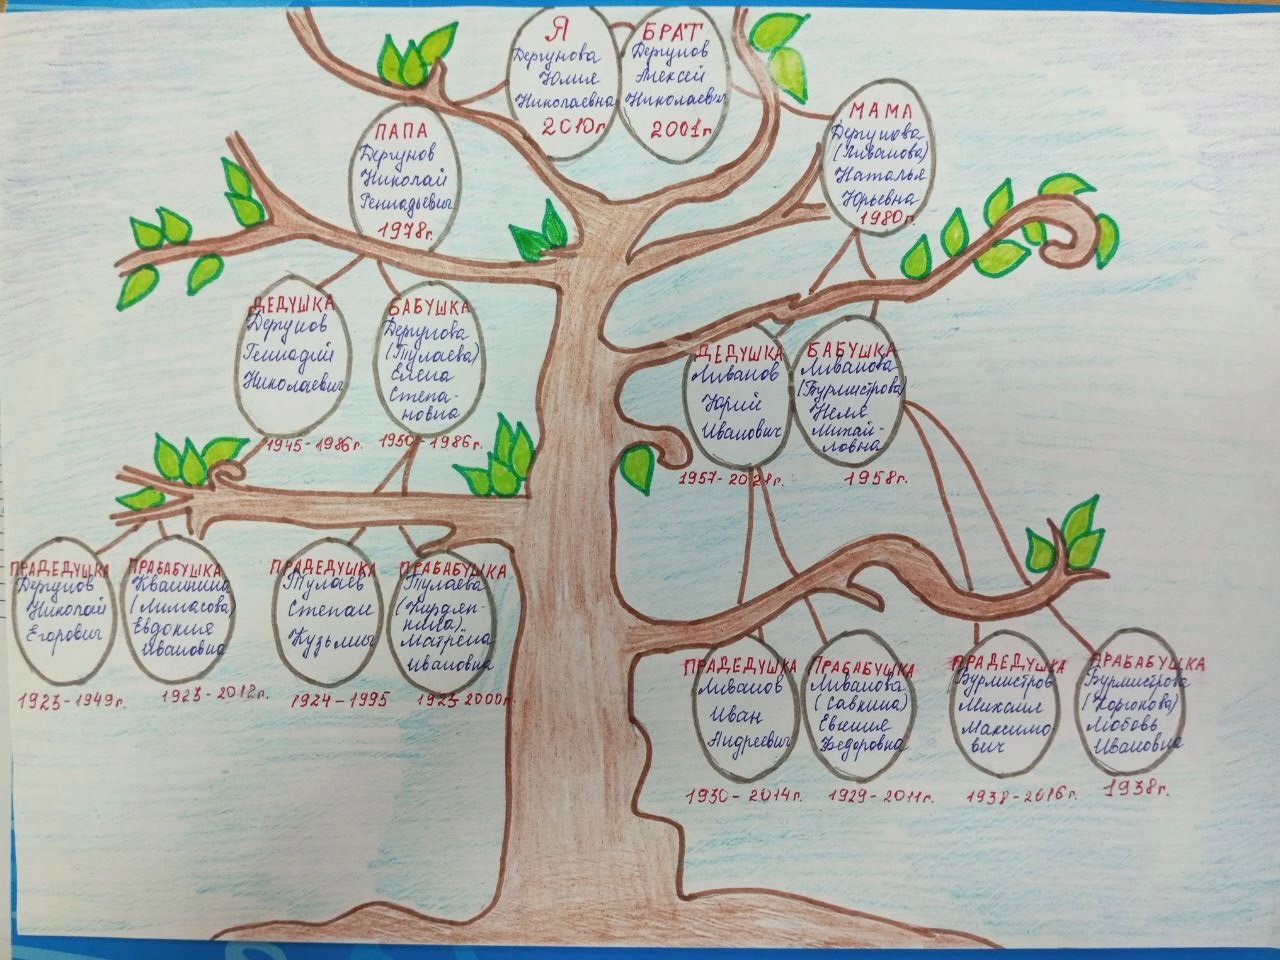 Я
Дергунова
Юлия
Николаевна
2010г
БРАТ
Дергунов
Алексей
Николаевич
2001г
ПАПА
Дергунов
Николай
Геннадьевич
1978г.
МАМА
Дергунова
(Ливанова)
Наталья
Юрьевна
1980г.
ДЕДУШКА
Дергунов
Геннадий
Николаевич
1945-1986г.
БАБУШКА
Дергунова
(Тулаева)
Елена
Степа-
новна
1950-1986г.
ДЕДУШКА
Ливанов
Юрий
Иванович
1957-2021г.
БАБУШКА
Ливанова
(Бурмистрова)
Неля
Михай-
ловна
1958г.
ПРАДЕДУШКА
Дергунов
Николай
Егорович
1923-1949г.
ПРАБАБУШКА
Квашнина
Евдокия
Ивановна
1923-2012г.
ПРАДЕДУШКА
Тулаев
Степан
Кузьмич
1924-1995
ПРАБАБУШКА
Тулаева
(Кирдян-
кина)
Матрёна
Ивановна
1923-2000г.
ПРАДЕДУШКА
Ливанов
Иван
Андреевич
1930-2014г.
ПРАБАБУШКА
Ливанова
(Савкина)
Евгения
Федоровна
1929-2011г.
ПРАДЕДУШКА
Бурмистров
Михаил
Максимо
вич
1938-2016г.
ПРАБАБУШКА
Бурмистрова
Любовь
Ивановна
1938г.